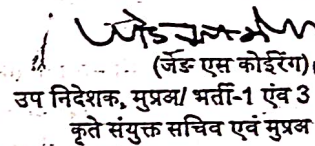 (जेड एस कोईरिंग)
उप निदेशक, मुप्रअ/ भर्ती-1 एंव 3
कृते संयुक्त सचिव एवं मुप्रअ